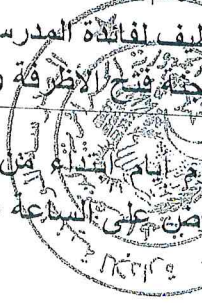 ظيف لفائدة المدرس
جنة فتح الأظرفة و
م أيام ابتداء من
وض على الساعة